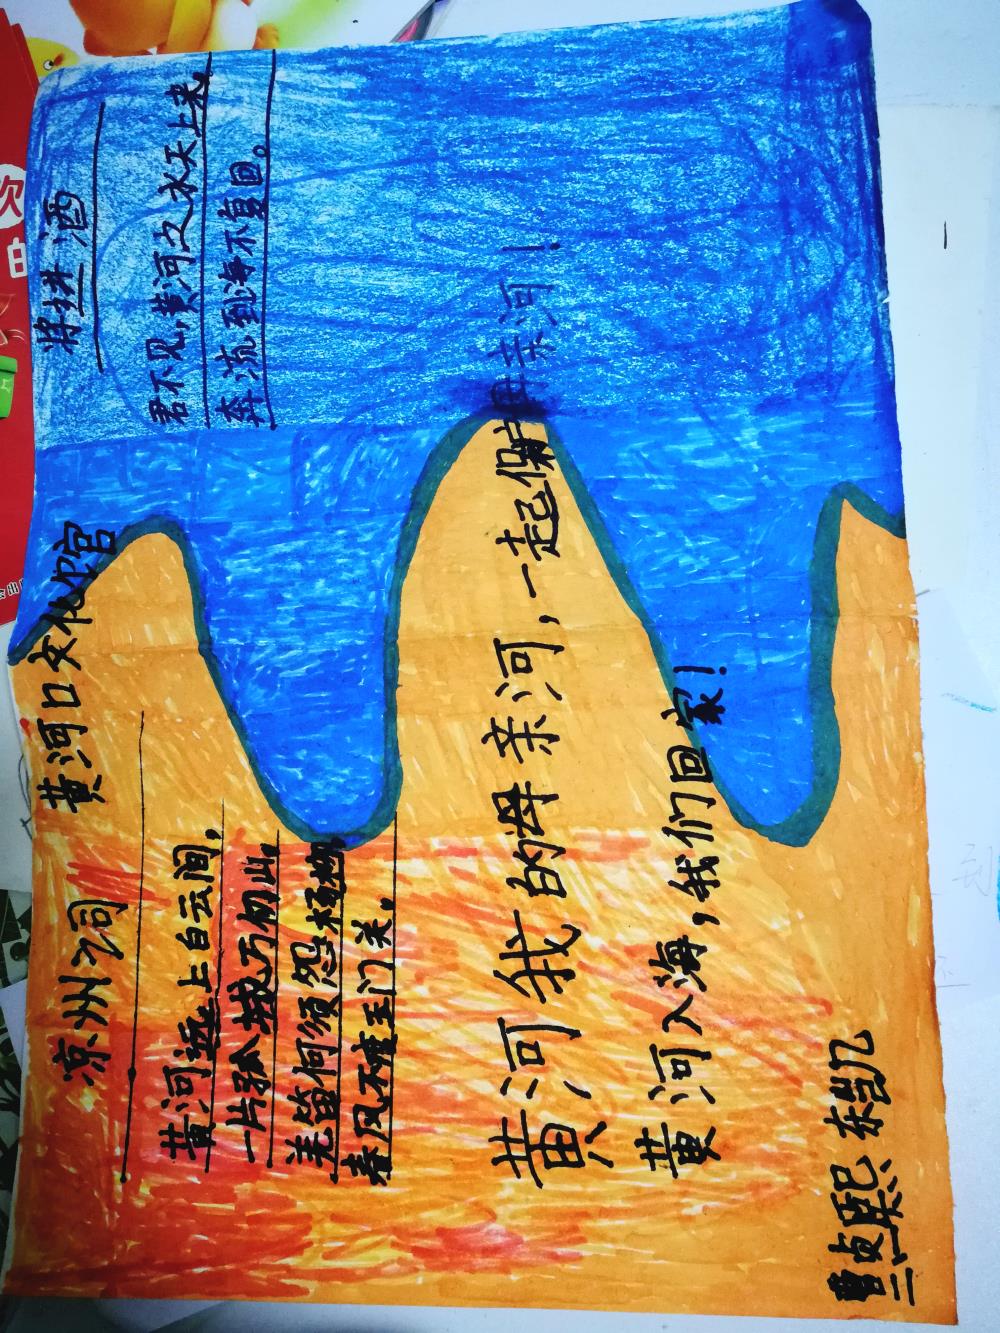 黄河口文化馆
凉州词
黄河远上白云间，
一片孤城万仞山。
羌笛何须怨杨柳，
春风不度玉门关。
将进酒
君不见，黄河之水天上来，
奔流到海不复回。
黄河我的母亲河，一起保护母亲河！
黄河入海，我们回家！
曹贞熙 东凯
三